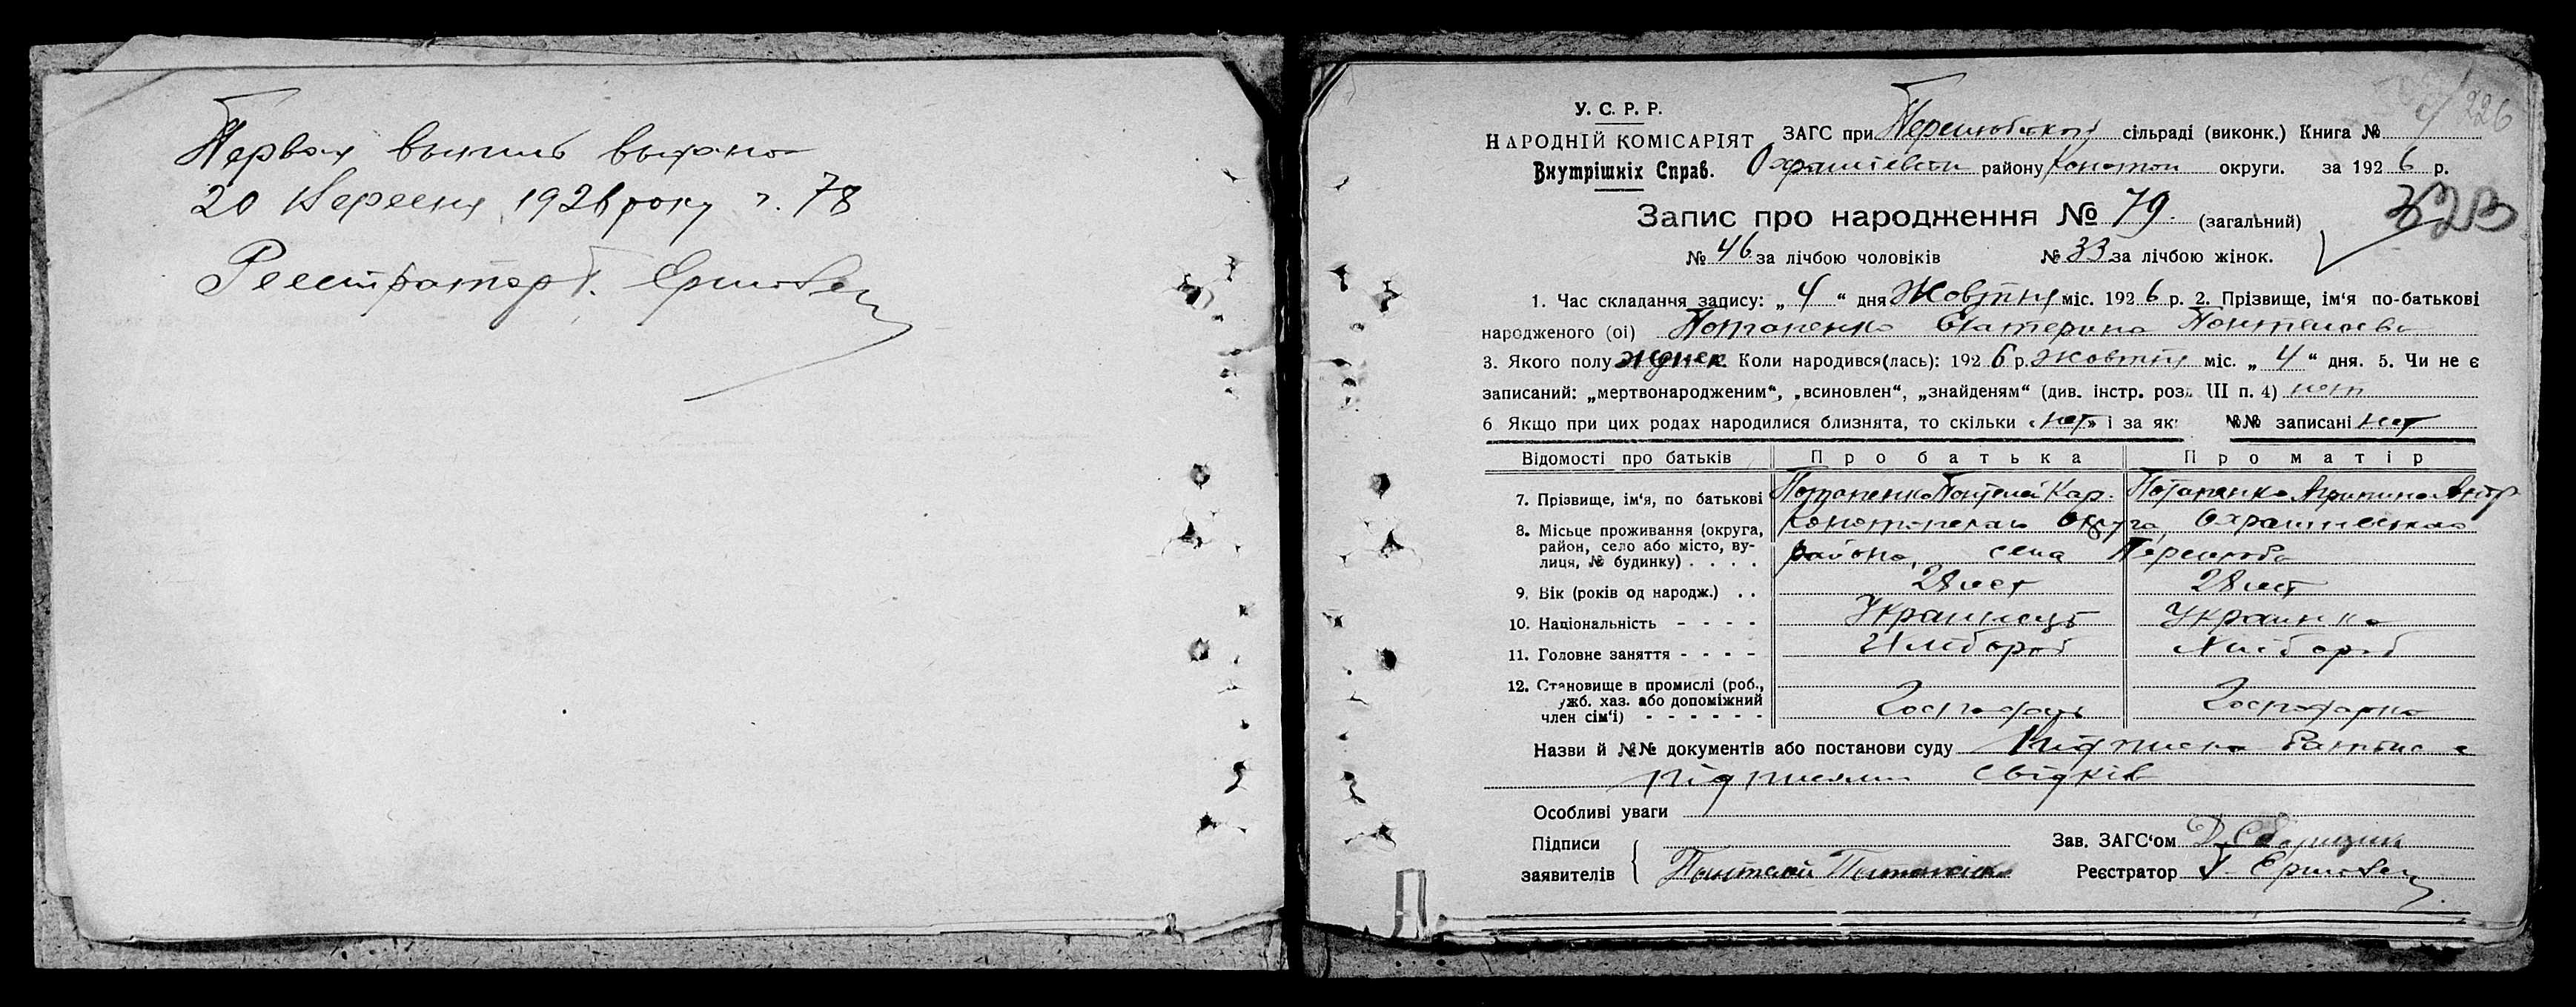 Первая выпись выдана
20 Вересня 1926 року г. 78
Реестратор Г.
226
У. С. Р. Р.
НАРОДНІЙ КОМІСАРІЯТ
Внутрішніх Справ.
ЗАГС при сільраді (виконк.) Книга №
району Конотоп округи. за 1926 р.
Запис про народження № 79. (загальний)
№ 46 за лічбою чоловіків № 33 за лічбою жінок.
1. Час складання запису: „ 4 “ дня Жовтня міс. 1926 р. 2. Прізвище, ім‘я по-батькові
народженого (ої) Потапенко Екатерина
3. Якого полу женск. Коли народився(лась): 1926 р. жовтня міс. „ 4 “ дня. 5. Чи не є
записаний: „мертвонародженим“, „всиновлен“, „знайденям“ (див. інстр. розд. III п. 4) нет
6 Якщо при цих родах народилися близнята, то скільки «нет» і за як №№ записані нет
Відомості про батьків Про батька Про матір
7. Прізвище, ім‘я, по батькові Потапенко Пантелей Кар. Потапенко Агрипина
8. Місьце проживання (округа, округа,
район, село або місто, ву- района, села
лиця, № будинку) . . . .
9. Вік (років од народж.) . . 28 лет 28 лет
10. Національність - - - - Украинець Украинка
11. Головне заняття - - - - Хлібороб Хлібороб
12. Становище в промислі (роб.,
ужб. хаз. або допоміжний
член сім‘ї) - - - - - - Господарь Господарка
Назви й №№ документів або постанови суду Підписка
підписями свідків
Особливі уваги
Підписи
заявителів Пантелей Потапенко
Зав. ЗАГС‘ом Д.
Реєстратор Г.